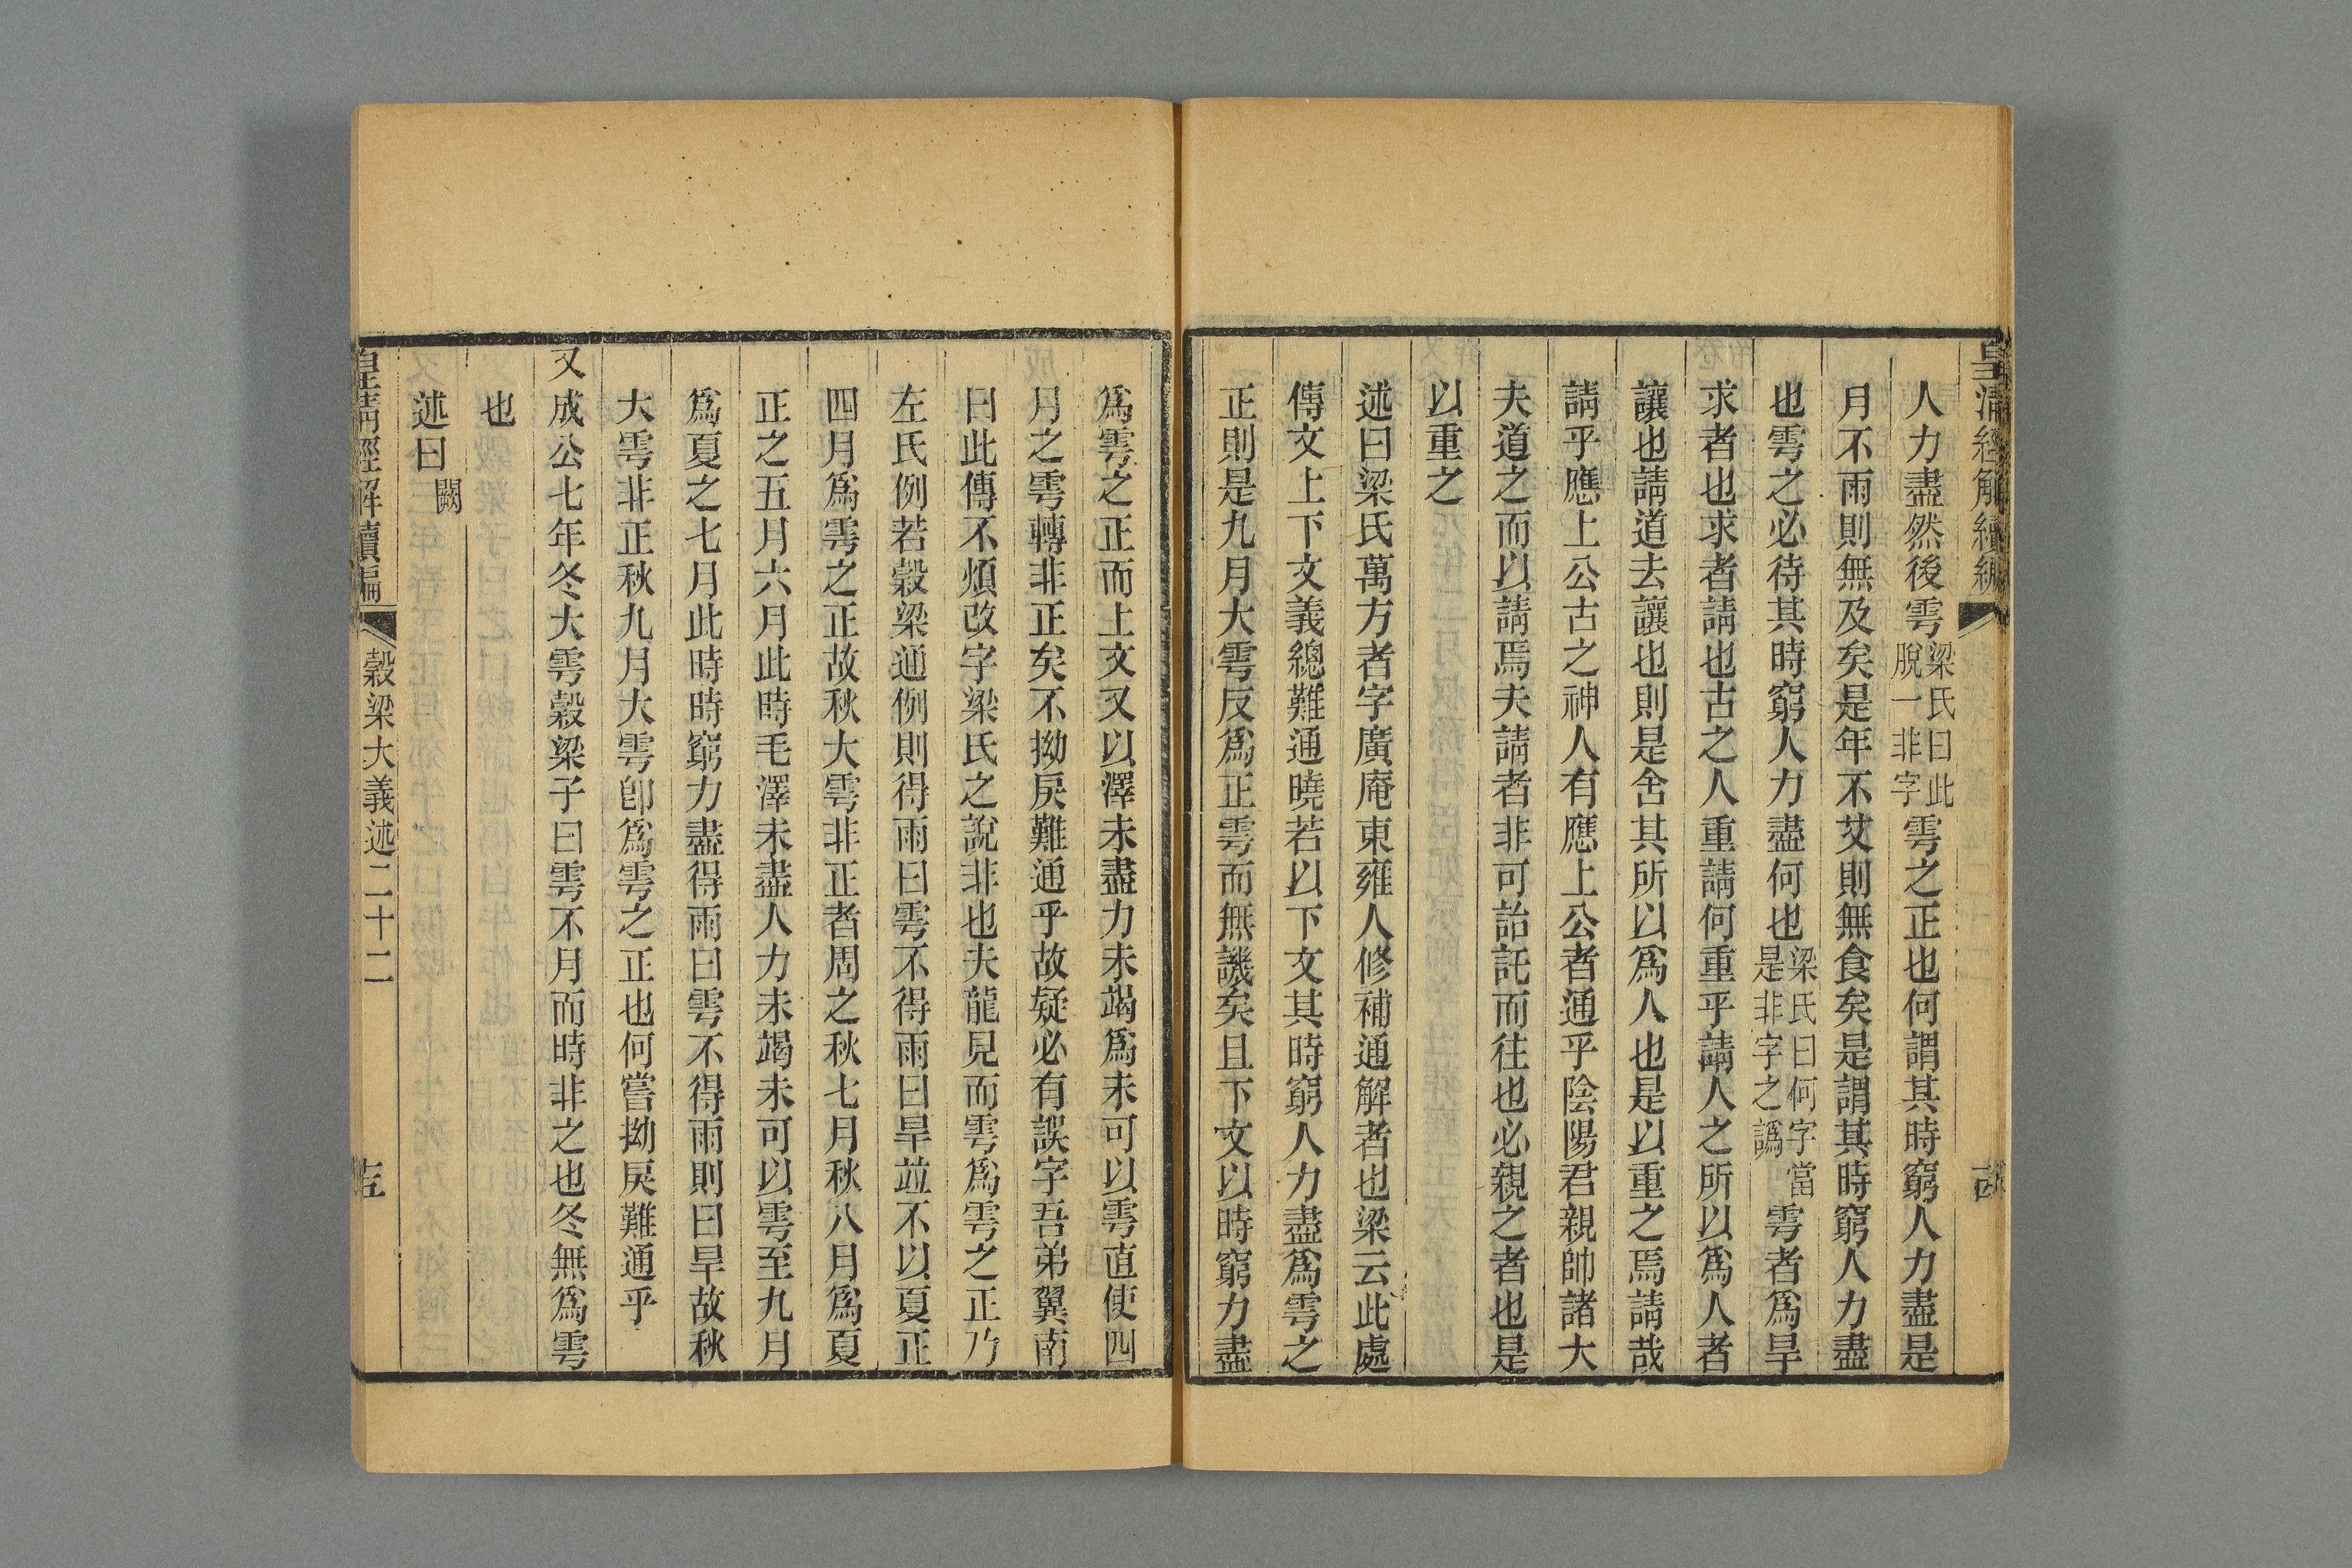 皇清經解續編
人力盡然後雩梁氏曰此脫一非字雩之正也何謂其時窮人力盡是
月不雨則無及矣是年不艾則無食矣是謂其時窮人力盡
也雩之必待其時窮人力盡何也梁氏曰何字當是非字之譌雩者爲旱
求者也求者請也古之人重請何重乎請人之所以爲人者
讓也請道去讓也則是舍其所以爲人也是以重之焉請哉
請乎應上公古之神人有應上公者通乎陰陽君親帥諸大
夫道之而以請焉夫請者非可詒託而往也必親之者也是
以重之
述曰梁氏萬方者字廣庵東雍人修補通解者也梁云此處
傳文上下文義總難通曉若以下文其時窮人力盡爲雩之
正則是九月大雩反爲正雩而無譏矣且下文以時窮力盡
爲雩之正而上文又以澤未盡力未竭爲未可以雩直使四
月之雩轉非正矣不拗戾難通乎故疑必有誤字吾弟翼南
曰此傳不煩改字梁氏之說非也夫龍見而雩爲雩之正乃
左氏例若穀梁通例則得雨曰雩不得雨曰旱竝不以夏正
四月爲雩之正故秋大雩非正者周之秋七月秋八月爲夏
正之五月六月此時毛澤未盡人力未竭未可以雩至九月
爲夏之七月此時時窮力盡得雨曰雩不得雨則曰旱故秋
大雩非正秋九月大雩卽爲雩之正也何嘗拗戾難通乎
又成公七年冬大雩穀梁子曰雩不月而時非之也冬無爲雩
也
述曰闕
皇清經解續編
穀梁大義述二十二